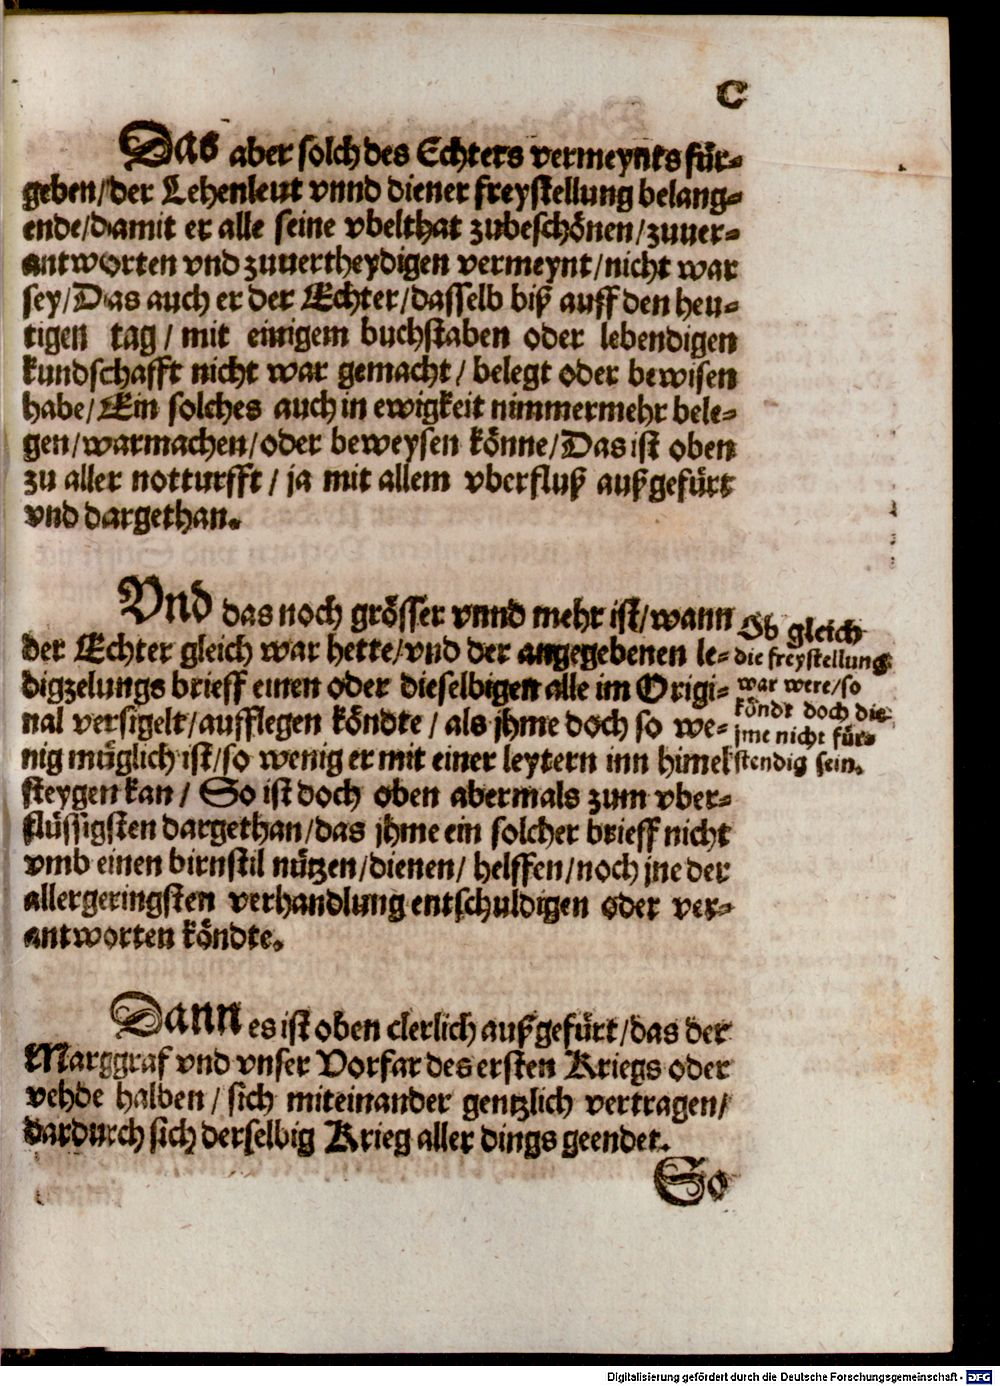 C
Das aber solch des Echters vermeynts für-
geben/der Lehenleut vnnd diener freystellung belang-
ende/damit er alle seine vbelthat zubeschönen/zuuer-
antworten vnd zuuertheydigen vermeynt/nicht war
sey/Das auch er der Echter/dasselb biß auff den heu-
tigen tag/ mit einigem buchstaben oder lebendigen
kundschafft nicht war gemacht/ belegt oder bewisen
habe/Ein solches auch in ewigkeit nimmermehr bele-
gen/warmachen/oder beweysen könne/Das ist oben
zu aller notturfft/ ja mit allem vberfluß außgefürt
vnd dargethan.
Vnd das noch grösser vnnd mehr ist/wann
der Echter gleich war hette/vnd der angegebenen le-
digzelungs brieff einen oder dieselbigen alle im Origi-
nal versigelt/aufflegen köndte/ als jhme doch so we-
nig müglich ist/so wenig er mit einer leytern inn himel
steygen kan/ So ist doch oben abermals zum vber-
flüssigsten dargethan/das jhme ein solcher brieff nicht
vmb einen birnstil nützen/dienen/ helffen/noch jne der
allergeringsten verhandlung entschuldigen oder ver-
antworten köndte.
Ob gleich
die freystellung
war were/so
köndt doch die
jme nicht für-
stendig sein.
Dann es ist oben clerlich außgefürt/das der
Marggraf vnd vnser Vorfar des ersten Kriegs oder
vehde halben/ sich miteinander gentzlich vertragen/
dardurch sich derselbig Krieg aller dings geendet.
So
Digitalisierung gefördert durch die Deutsche Forschungsgemeinschaft - DFG